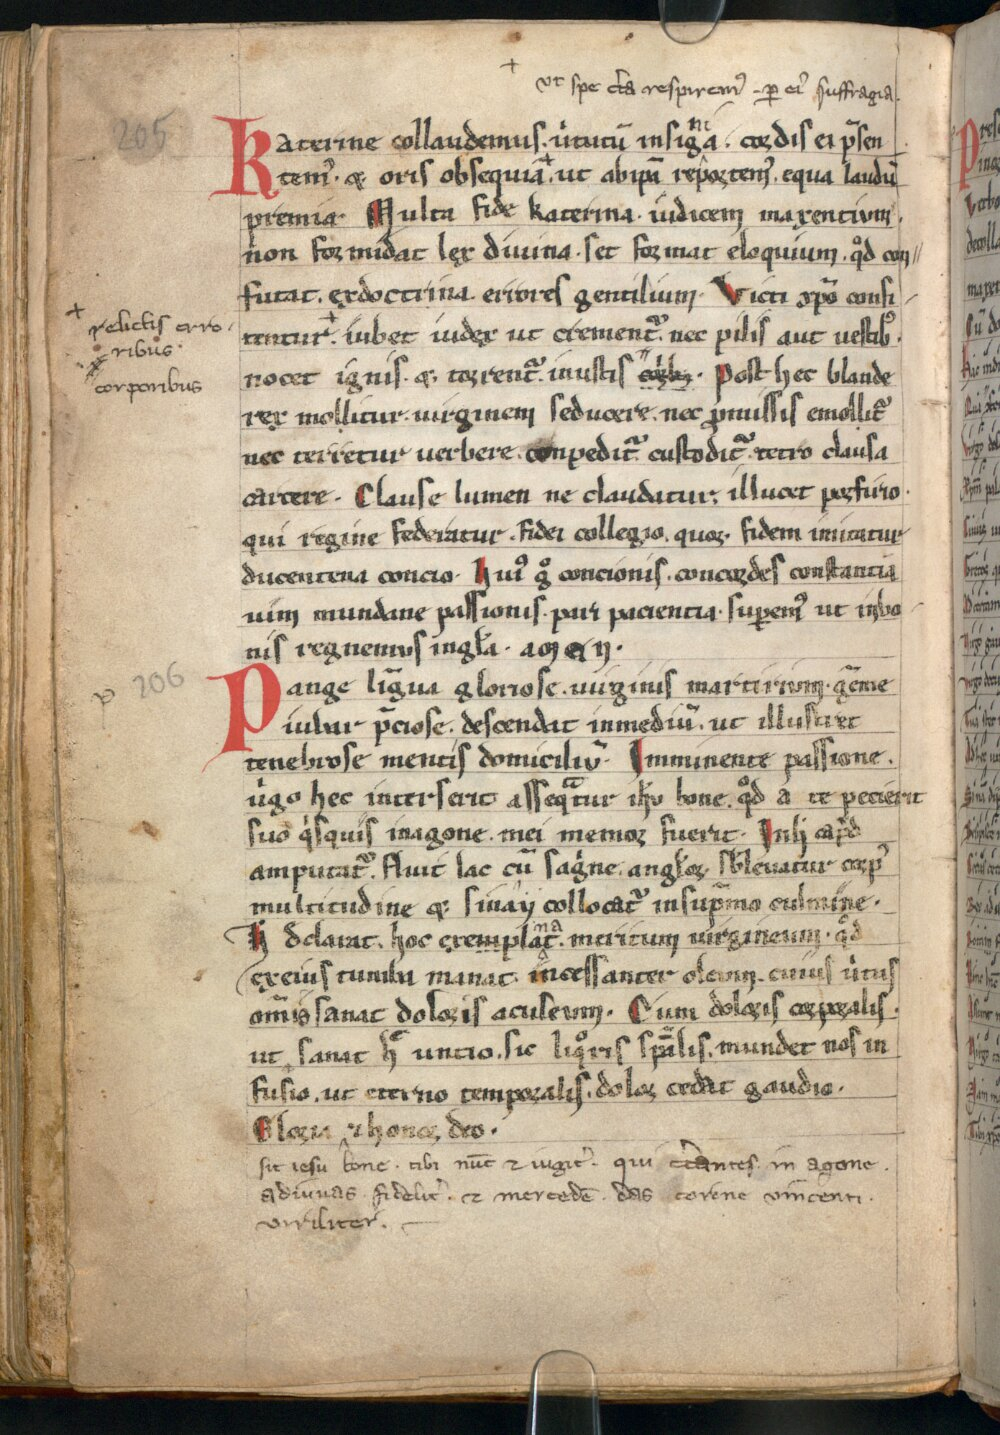 ut spe cta respirem᷒ . p ei᷒ suffragia.
205
Katerine collaudemus. u̍tutū insignia. cordis ei p̄sen
tem᷒. & oris obsequia. ut ab ipa reportem᷒. equa laudū
premia. Multa fide katerina. iudicem maxentium.
non formidat lex diuina. set format eloquium. qd con
futat. ex doctrina. errores gentilium. Victi xpo consi
relictis erro
ribus
tentur. iubet iudex ut crement᷒. nec pilis aut uestib᷒
corporibus
nocet ignis. & torrent᷒. inustis. Post hec blande
rex mollitur. uirginem seducere. nec promissis emollit᷒
nec terretur uerbere. conpedit᷒ custodit᷒. tetro clausa
carcere. Clause lumen ne claudatur. illucet porfirio.
qui regine federatur. fidei collegio. quor fidem imitatur
ducentena concio. Hui᷒ g concionis. concordes constantia
uim mundane passionis. pari paciencia. superem᷒ ut in bo
nis regnemus in gła. amen.
206
p
Pange lingua gloriose. uirginis martirium. gēme
iubar p̄ciose. descendat in mediū. ut illustret
tenebrose mentis domiciliū. Imminente passione.
u̍go hec interserit assequatur ihu bone. qd a te pecierit
suo qisquis in agone. mei memor fuerit. In h caput
amputat᷒. fluit lac cū sagine. anglor. subleuatur corp᷒
multitudine & sinay collocat᷒ in sup̄mo culmine.
H declarat. hoc exemplar. meritum uirgineum. qd
ex eius tumba manat. incessanter oleum. cuius u̍tus
om̄is sanat doloris aculeum. Cum doloris corporalis.
ut sanat h unctio. sic liquoris sp̄alis. mundet nos in
fusio. ut eterno temporalis. dolor cedat gaudio.
Gloria & honor deo.
sit iesu bone. tibi nūc & iugit᷒. qui certantes in agone.
adiuuas fidelit᷒. & mercedē das corone vincenti.
viriliter.